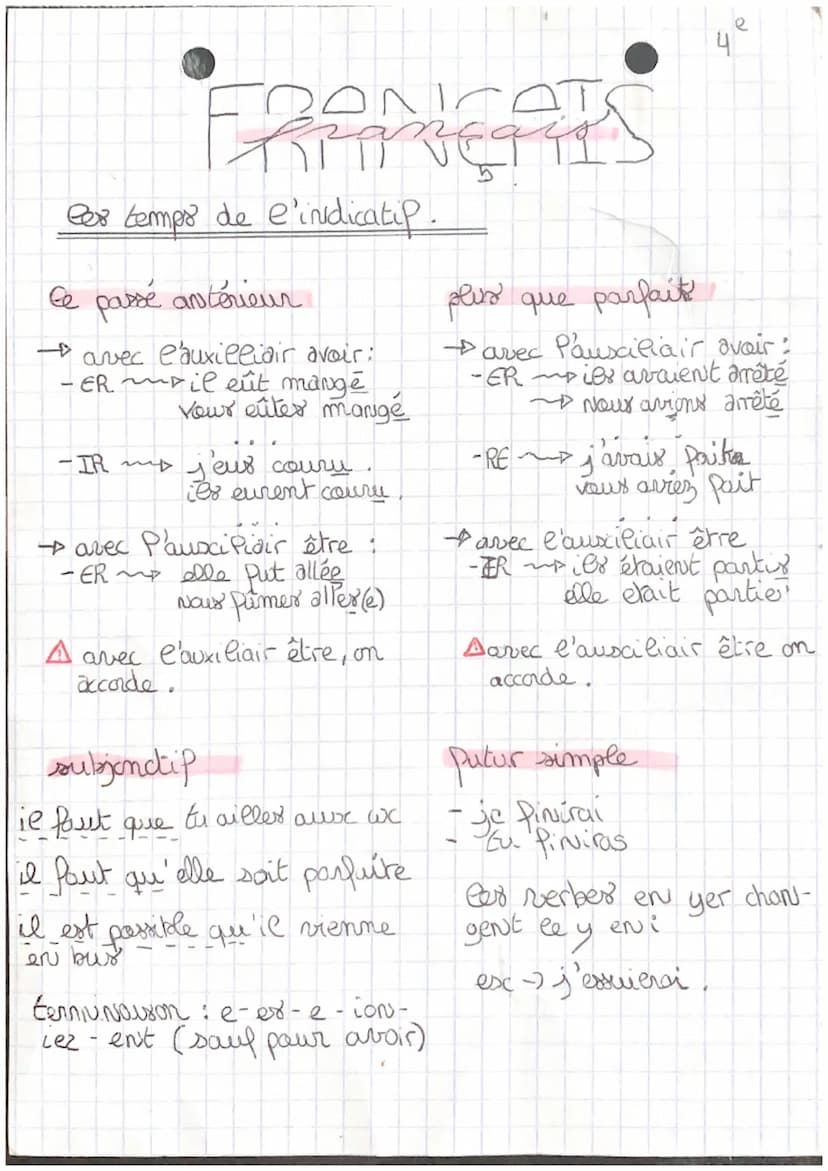 4e
FRANÇAIS
français
les temps de l'indicatif.
le passé antérieur
→ avec l'auxilliair avoir :
- ER → il eût mangé
vous eûtes mangé
- IR → j'eus couru.
ils eurent couru.
→ avec l'auxiliair être :
- ER → elle fut allée
nous fûmes allés(e)
⚠ avec l'auxiliair être, on
accorde.
plus que parfait
→ avec l'auxciliair avoir :
- ER → ils avaient arrêté
→ nous avions arrêté
- RE → j'avais fait
vous aviez fait
→ avec l'auxiliair être
- IR → ils étaient partis
elle etait partie
⚠ avec l'auxciliair être on
accorde.
subjonctif
il faut que tu ailles aux wc
il faut qu'elle soit parfaite
il est possible qu'il vienne
en bus
terminaison : e - es - e - ion -
iez - ent (sauf pour avoir)
futur simple
- je finirai
- tu finiras
les verbes en yer chan-
gent le y en i
ex → j'essuierai.